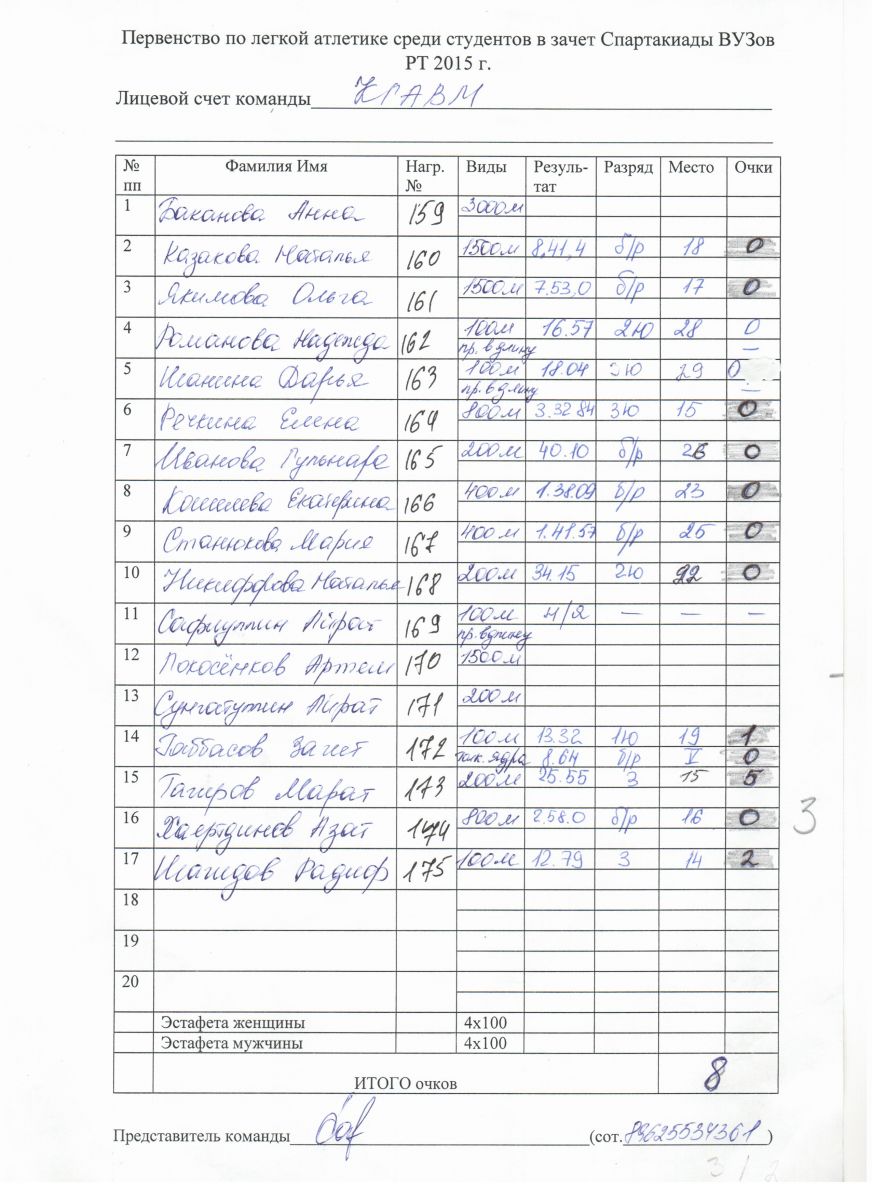 Первенство по легкой атлетике среди студентов в зачет Спартакиады ВУЗов
РТ 2015 г.
Лицевой счет команды КГАВМ
№ пп Фамилия Имя Нагр. № Виды Резуль-тат Разряд Место Очки
1 Баканова Анна 159 3000м
2 Казакова Наталья 160 1500м 8,41,4 б/р 18 0
3 Якимова Ольга 161 1500м 7.53,0 б/р 17 0
4 Романова Надежда 162 100м 16.57 2ю 28 0
пр. в длину —
5 Шанина Дарья 163 100м 18.04 3ю 29 0
пр. в длину —
6 Речкина Елена 164 800м 3.32 84 3ю 15 0
7 Иванова Гульнара 165 200м 40.10 б/р 26 0
8 Кошелева Екатерина 166 400м 1.38.09 б/р 23 0
9 Станюкова Мария 167 400м 1.41.57 б/р 25 0
10 Никифорова Наталья 168 200м 34.15 2ю 22 0
11 Сафиуллин Айрат 169 100м н/я — — —
пр. в длину
12 Покосёнков Артем 170 1500м
13 Сунгатуллин Айрат 171 200м
14 Габбасов Загит 172 100м 13.32 1ю 19 1
тол. ядра 8.64 б/р V 0
15 Тагиров Марат 173 200м 25.55 3 15 5
16 Хаертдинов Азат 174 800м 2.58.0 б/р 16 0
17 Шагидов Радиф 175 100м 12.79 3 14 2
18
19
20
Эстафета женщины 4х100
Эстафета мужчины 4х100
ИТОГО очков 8
Представитель команды (сот. 89625534361)
3
3 1 2